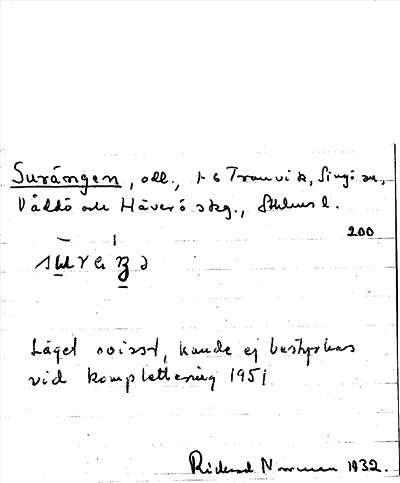 Surängen, odl., 1-6 Tranvik, Singö sn,
Väddö och Häverö skg., Sthlms l.
200
Läget ovisst, kunde ej bestyrkas
vid komplettering 1951
Rickard Norrman 1932.